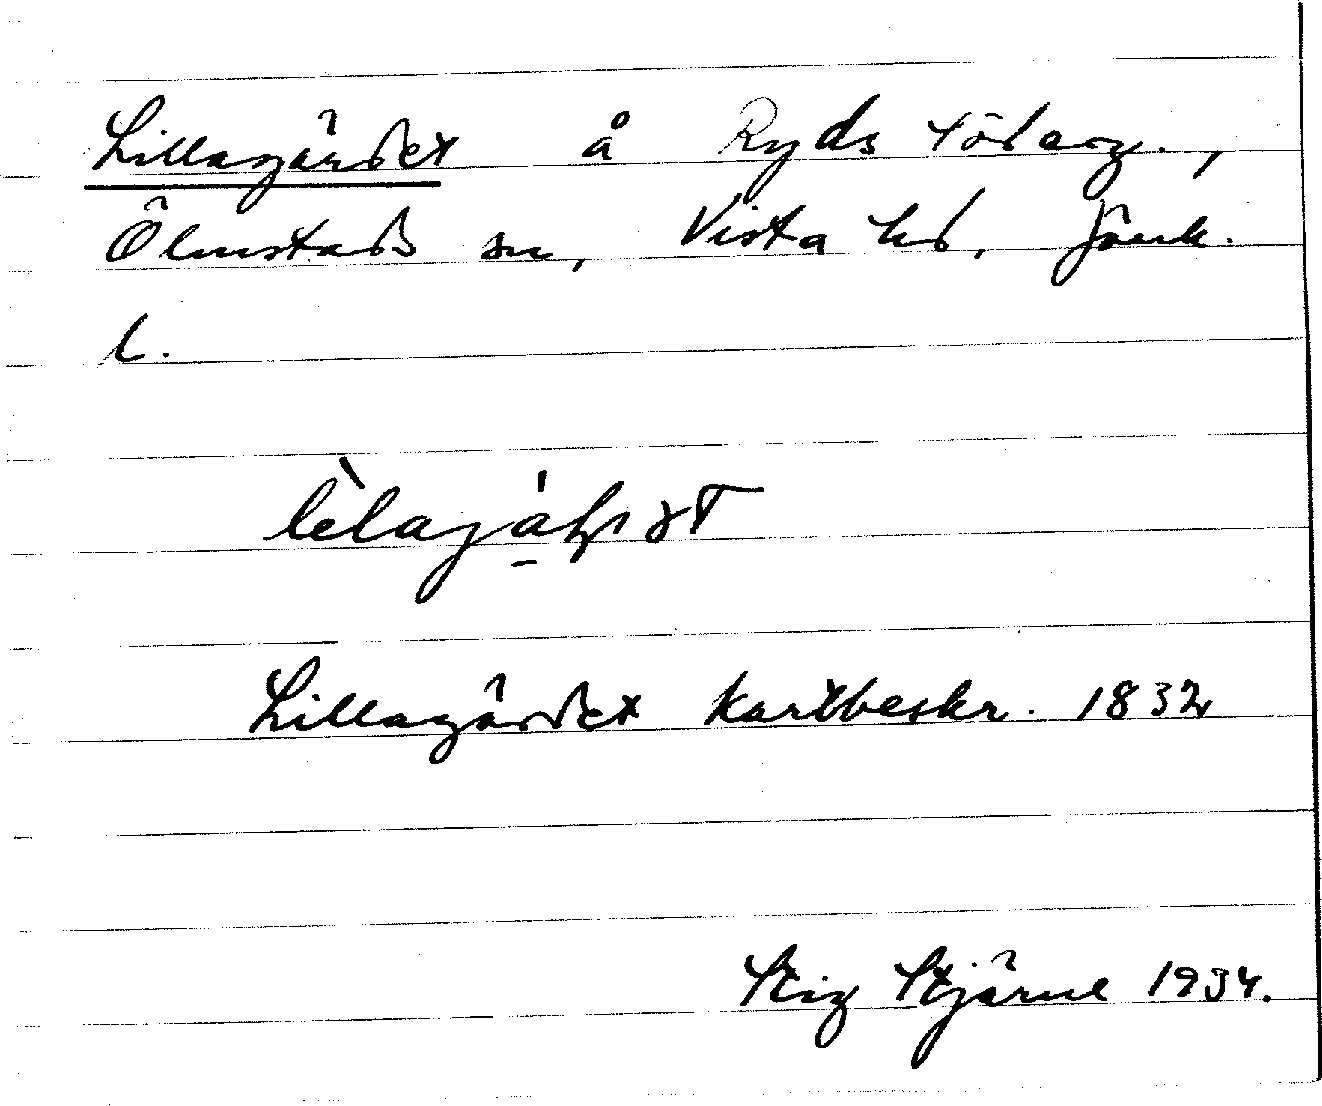 Lillagärdet å Ryds Söderg.,
Ölmstads sn, Vista hd, Jönk.
l.
Lillagärdet Kartbeskr. 1832
Stig Stjärne 1934.